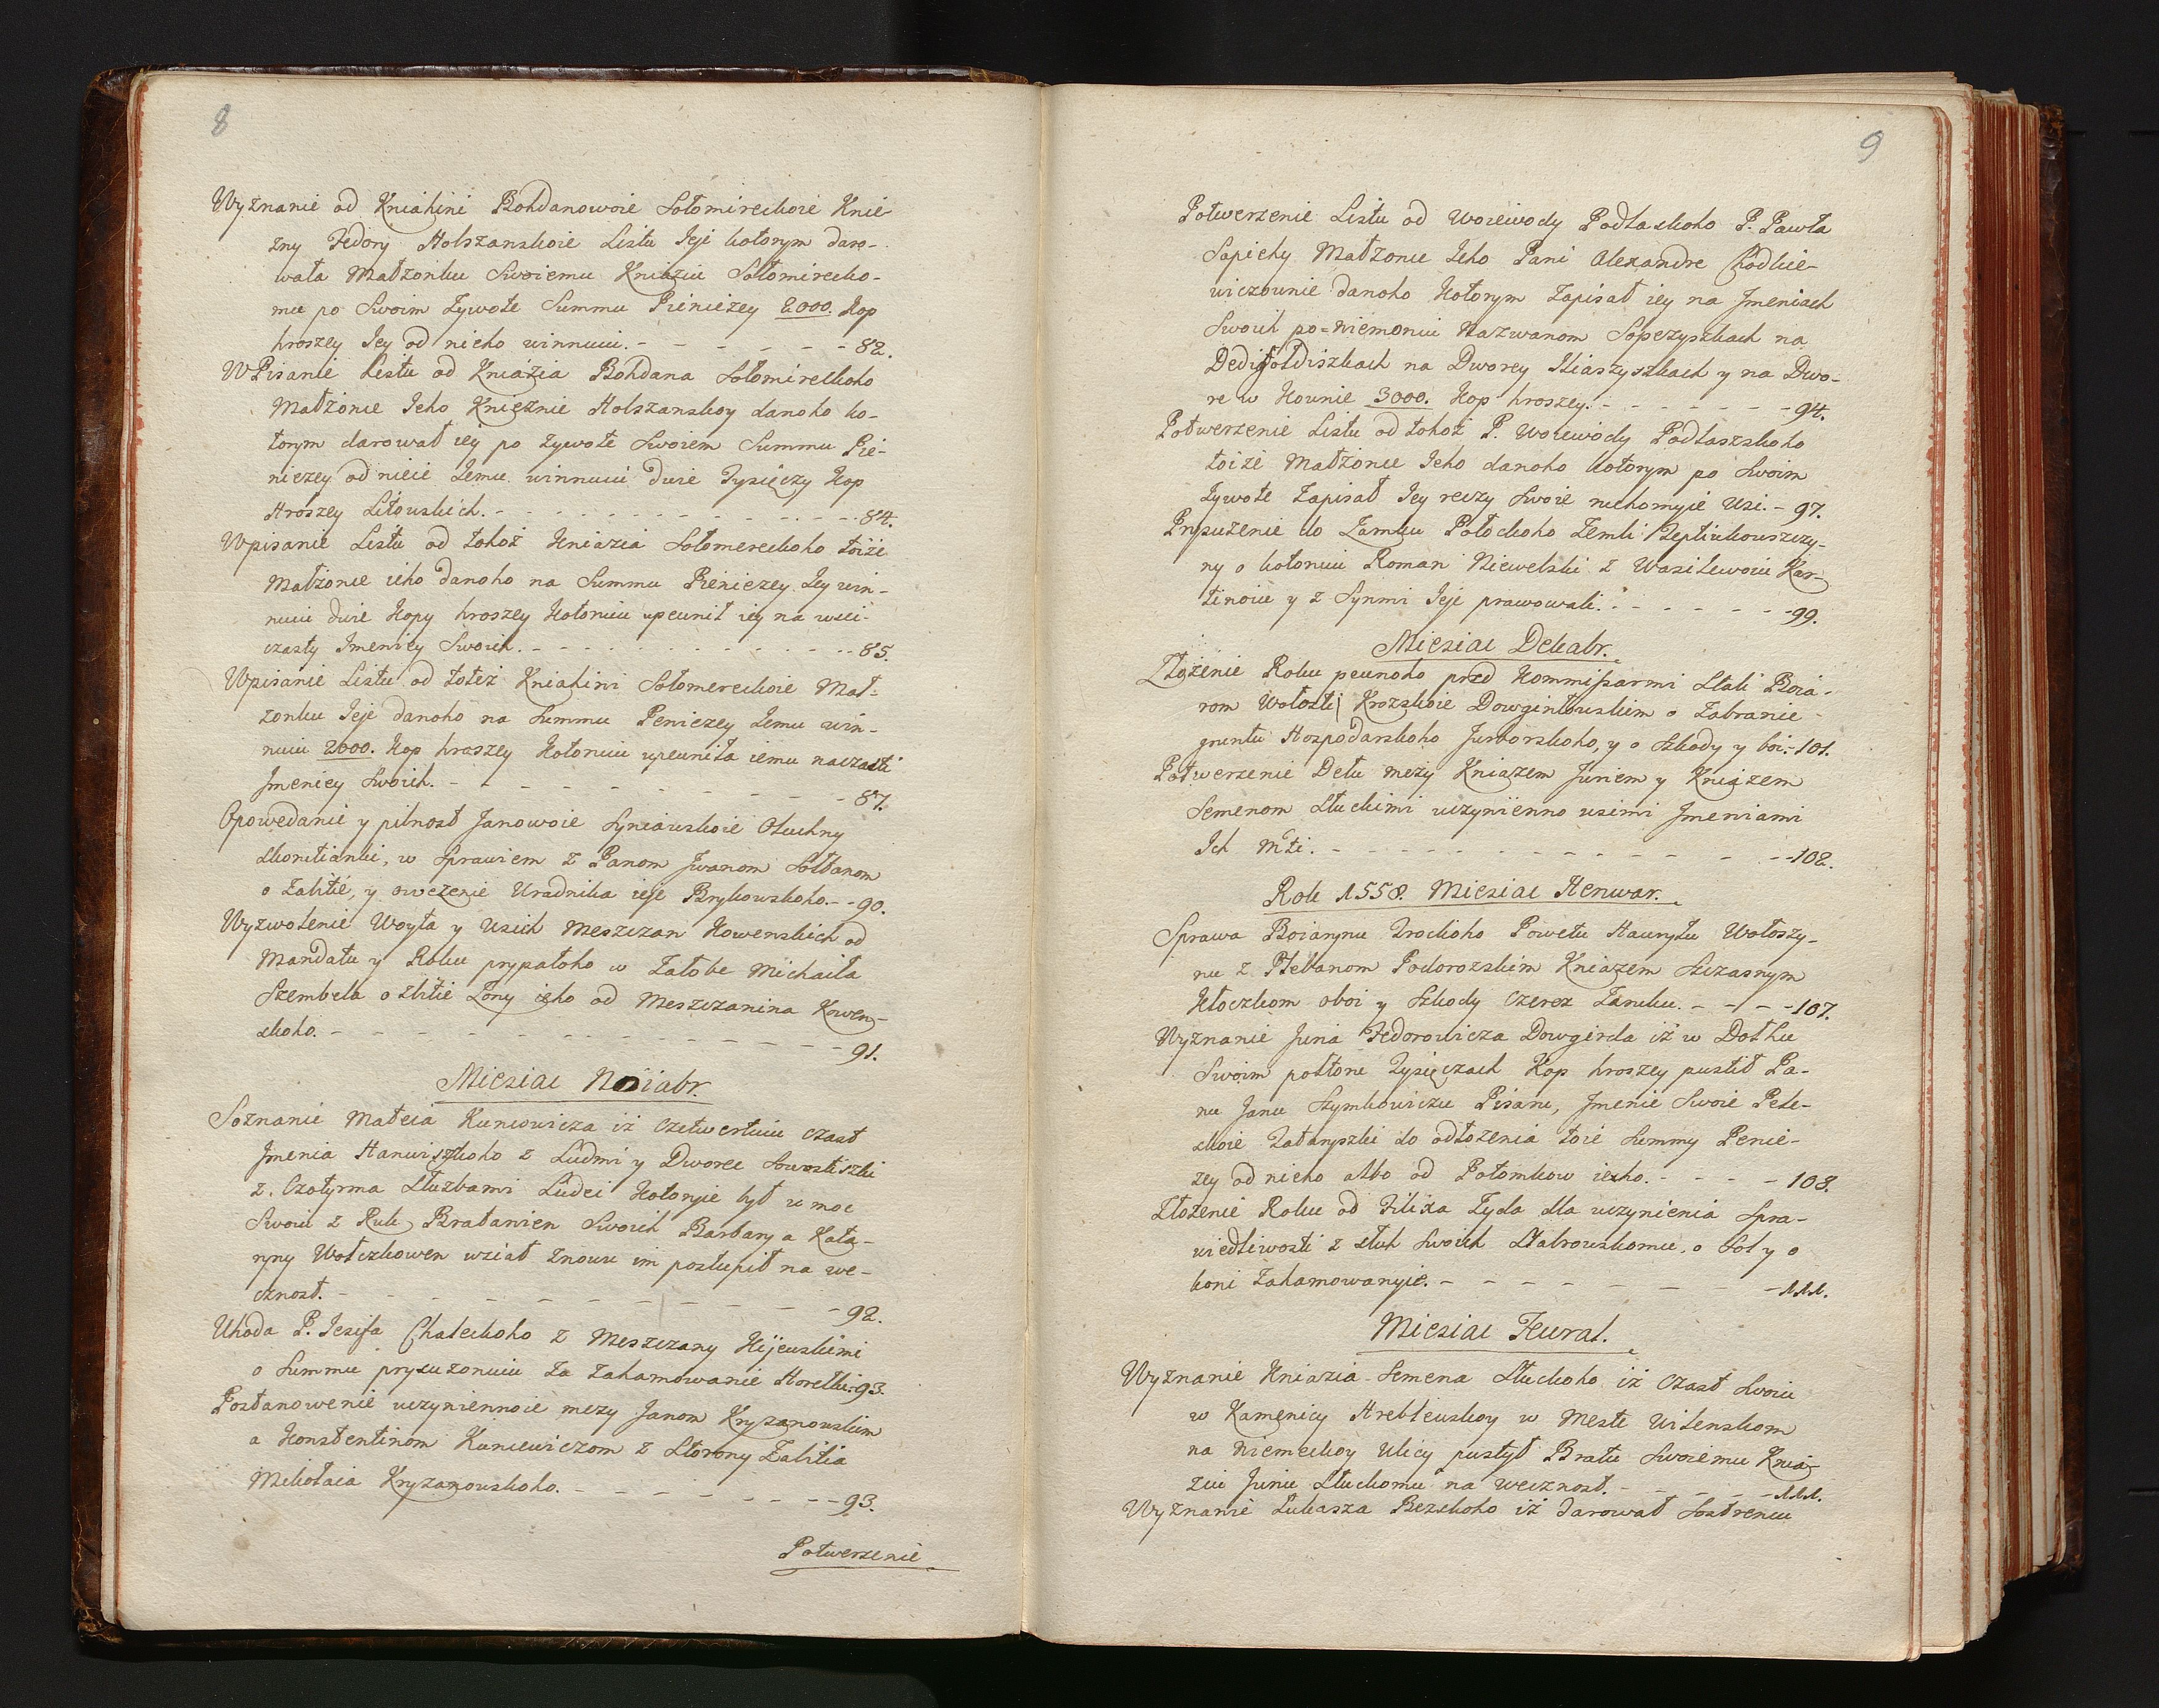 8
Wyznanie od Kniahini Bohdanowoie Sołomireckoie Knie-
zny Fedory Holszanskoie Listu Jeje kotorym daro-
wała Małżonku Swoiemu Kniaziu Sołomirecko-
mu po Swoim Zywote Summu Pieniezey 2000. Kop
hroszey Jey od nieho winnuiu. - - - - - - 82.
WPisanie Listu od Kniazia Bohdana Sołomireckoho
Małżonce Jeho Knieznie Holszanskoy danoho ko-
torym darował iey po zywote Swoiem Summu Pie-
niezey od nieie Jemu winnuiu dwie Tysięczy Kop
Hroszey Litowskich. - - - - - - - - - - 84.
Wpisanie Listu od tohoż Kniazia Sołomereckoho toiże
Małżonce ieho danoho na Summu Pieniezey Jey win-
nuiu dwie Kopy hroszey Kotoruiu upewnił iey na wsei-
czasty Imeniey Swoich. - - - - - - - - - - 85.
Wpisanie Listu od toież Kniahini Sołomereckoie Mał-
żonku Jeje danoho na Summu Peniezey Jemu win-
nuiu 2000. Kop hroszey Kotoruiu upewniła iemu naczasti
Jmeniey Swoich. - - - - - - - - - - 87.
Opowedanie y pilnost Janowoie Syniawskoie Oluchny
Skonetianki, w Sprawiem z Panom Jwanom Sołtanom
o Zabitié, y owczenie Uradnika ieje Brykowskoho. - - 90.
Wyzwolenie Woyta y Usich Meszczan Kowenskich od
Mandatu y Roku prypałoho w Załobe Michaiła
Szembela o zbitie Żony ieho od Meszczanina Kowen-
skoho. - - - - - - - - - - - - 91.
Miesiac Noiabr.
Soznanie Mateia Kuncowicza iż czetwertuiu czast
Jmenia Hanuiszkoho z Ludmi y Dworec Sowstiszki
z. Czotyrma Służbami Ludei Kotoryie był w moc
Swoiu z Ruk Bratanien Swoich Barbary a Kata-
ryny Wołczkowen wziat znowu im postupił na we-
cznost. - - - - - - - - - - 92.
Uhoda P. Jesifa Chaleckoho z Meszczany Kijewskimi
o Summu prysuzonuiu za zahamowanie Horełki. - 93.
Postanowenie uczyniennoie mezy Janom Kryzanowskim
a Konstentinom Kuncewiczom z Storony Zabitia
Mikołaia Kryzanowskoho. - - - - - - - - 93.
Potwerzenie
9
Potwerzenie Listu od Woiewody Podlaskoho P. Pawła
Sapiehy Małżonce Jeho Pani Alexandre Chodkie-
wiczownie danoho Kotorym zapisał iey na Jmeniach
Swoich po=niemoniu Nazwanom Sopezyszkach na
Dedigołdiszkach na Dworcy Hiaszyszkach y na Dwo-
re w Kownie 3000. Kop hroszey. - - - - - - 94.
Potwerzenie Listu od tohoż P. Woiewody Podlaszskoho
toiże Małżonce Jeho danoho kotorym po Swoim
Zywote zapisał Jey reczy Swoie ruchomyie Usi. - 97.
Prysużenie do Zamku Połockoho Zemli Teplinkowszczy-
ny o kotoruiu Roman Niewelski z Wasilewoiu Kar-
tinoiu y z Synmi Jeje prawowali. - - - - - - 99.
Miesiac Dekabr.
Złożenie Roku pewnoho pred Kommiſsarmi Stali Boia-
rom Wołosti Krozskoie Dowgintowskim o Zabranie -
gruntu Hospodarskoho Jurborskoho, y o szkody y boi. - 101.
Potwerzenie Dełu mezy Kniazem Juriem y Kniazem
Semenom Słuckimi uczynienno usimi Jmeniami
Jch Mti. - - - - - - - - - - - 102.
Rok 1558. Miesiac Henwar.
Sprawa Boiarynu Trockoho Powetu Hauryłu Wołoszy-
nu z Plebanom Podorozskim Kniazem Szczasnym
Kłoczkom oboi y Szkody czerez Zaruku. - - - - 107.
Wyznanie Juria Fedorowicza Dowgirda iż w Dołhu
Swoim połtore Tysięczach Kop hroszey pustił Pa-
nu Janu Szymkowiczu Pisaru, Jmenie Swoie Pele-
skoie Zataryszki do odłożenia toie Summy Penie-
zey od nieho albo od Potomkow ieho. - - - - 108.
Złożenie Roku od Filixa Zyda dla uczynienia Spra-
wiedliwosti z sług Swoich Stabrowskomu, o Soł y o
koni Zahamowanyie. - - - - - - - 111.
Miesiac Fewral.
Wyznanie Kniazia Semena Słuckoho iż czast Swoiu
w Kamenicy Hreblewskoy w Meste Wilenskom
na Niemeckoy Ulicy pustył Bratu Swoiemu Knia-
ziu Juriu Słuckomu na wecznost. - - - - - 111.
Wyznanie Łukasza Bezskoho iż darował Sostrencu